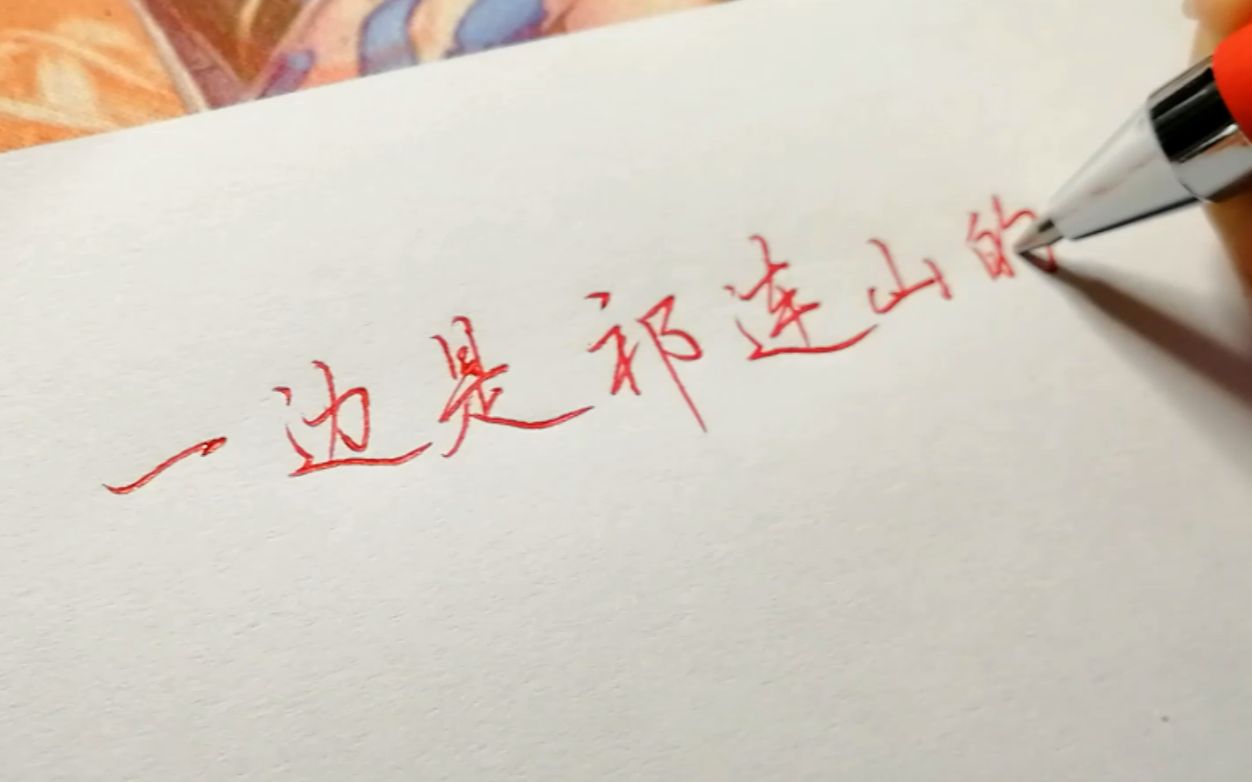 一边是祁连山的